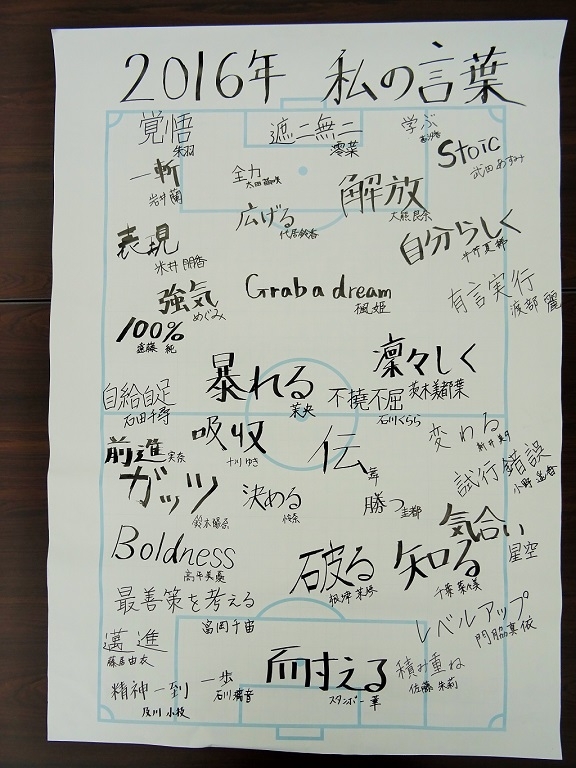 2016年 私の言葉
覚悟
朱羽
遮二無二
澪菜
学ぶ
Stoic
武田あすみ
一斬
岩井蘭
全力
太田
解放
大熊良奈
広げる
代居鈴香
自分らしく
表現
米井朋香
強気
めぐみ
Grab a dream
楓姫
有言実行
渡部麗
100%
遠藤純
暴れる
茉央
凛々しく
茨木美都葉
不撓不屈
石川くらら
自給自足
石田千尋
吸収
十川ゆき
伝
変わる
新井
前進
実奈
ガッツ
鈴木陽奈
決める
勝つ
圭都
試行錯誤
小野
気合い
星空
Boldness
高平美憂
破る
知る
千葉
最善策を考える
富岡千宙
レベルアップ
門脇真依
邁進
藤居由衣
精神一到
及川小枝
一歩
石川璃音
耐える
スタンボー華
積み重ね
佐藤朱莉